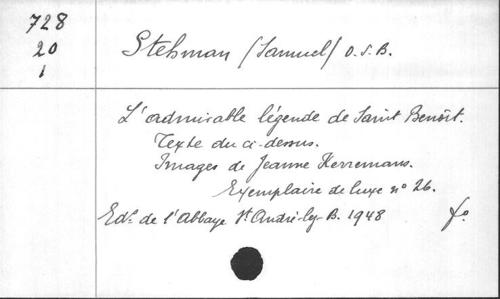 728
20
1
Stehman (Samuel) O.S.B.
L'admirable légende de Saint Benoît.
Texte du ci-dessus.
Images de Jeanne Herremans.
Exemplaire de luxe n° 26.
Edns de l'Abbaye St André-lez-B. 1948 fo